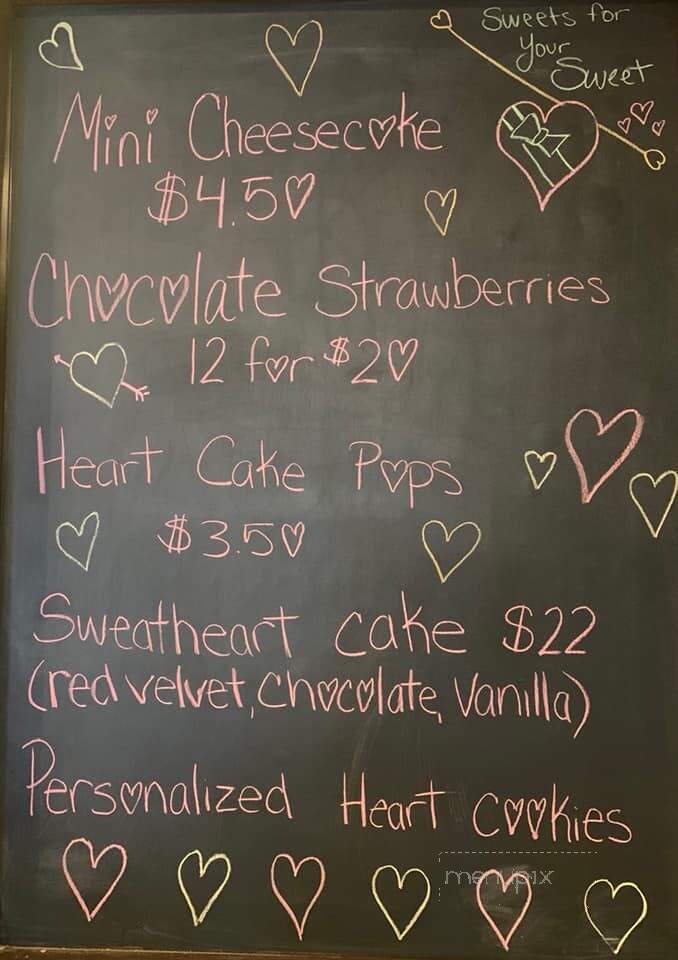 Sweets for
Your
Sweet
Mini Cheesecake
$4.50
Chocolate Strawberries
12 for $20
Heart Cake Pops
$3.50
Sweatheart cake $22
(red velvet, Chocolate, Vanilla)
Personalized Heart cookies
menupix